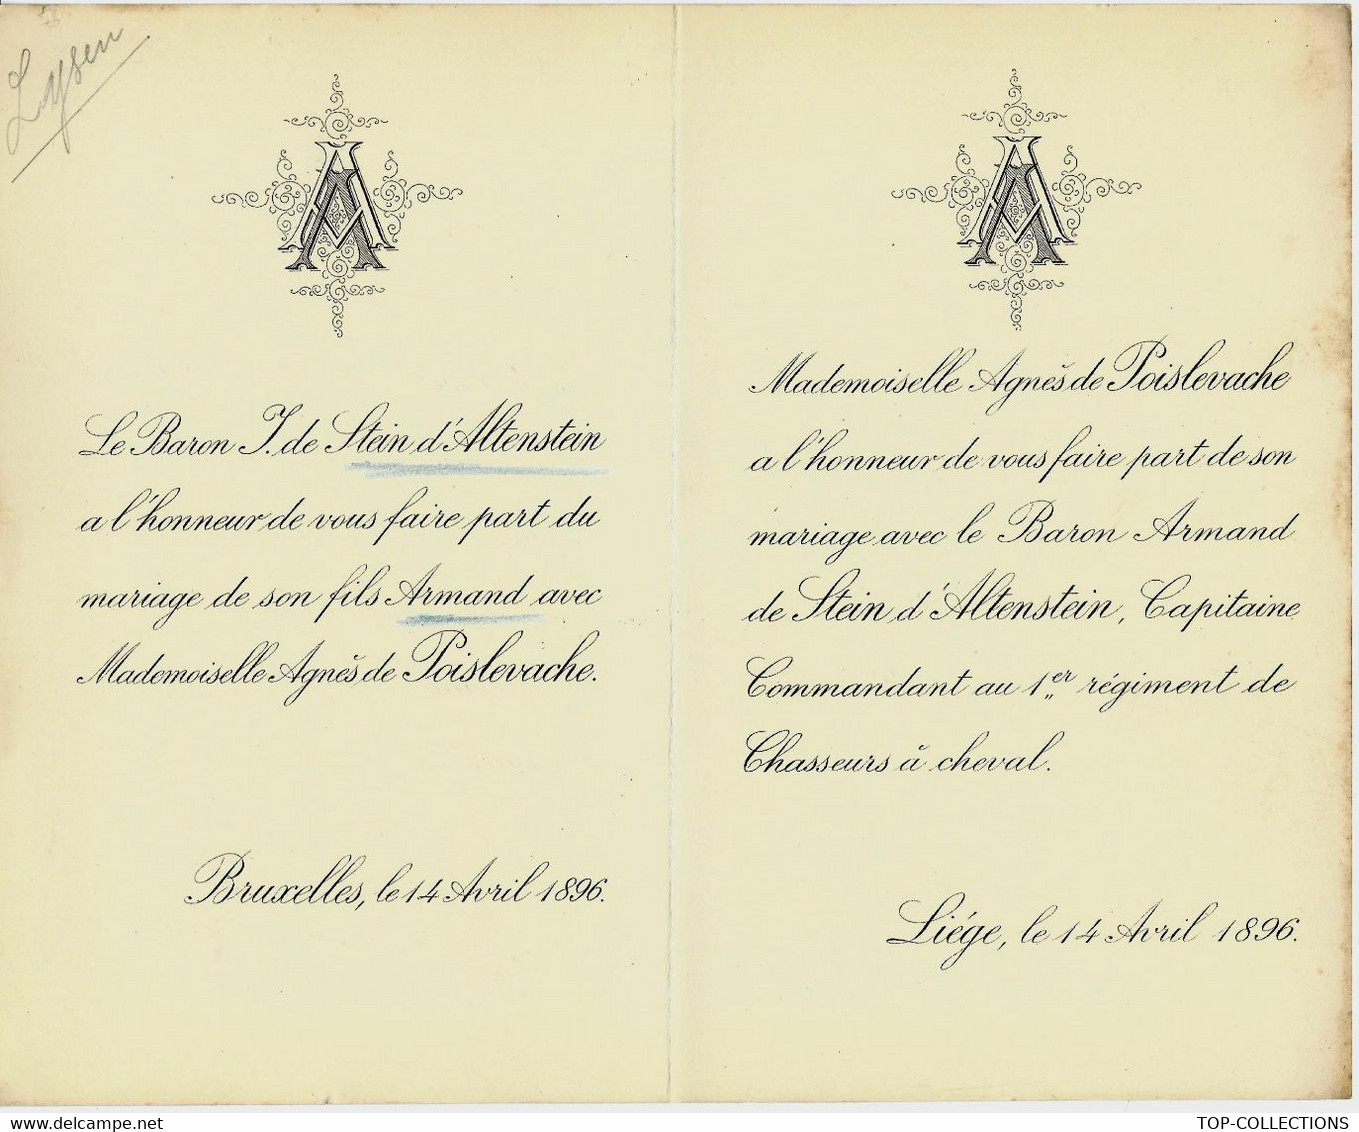 Lysen
AA
Le Baron J. de Stein d'Altenstein
a l'honneur de vous faire part du
mariage de son fils Armand avec
Mademoiselle Agnès de Poislevache.
Bruxelles, le 14 Avril 1896.
AA
Mademoiselle Agnès de Poislevache
a l'honneur de vous faire part de son
mariage avec le Baron Armand
de Stein d'Altenstein, Capitaine
Commandant au 1er régiment de
Chasseurs à cheval.
Liége, le 14 Avril 1896.
www.delcampe.net
TOP-COLLECTIONS